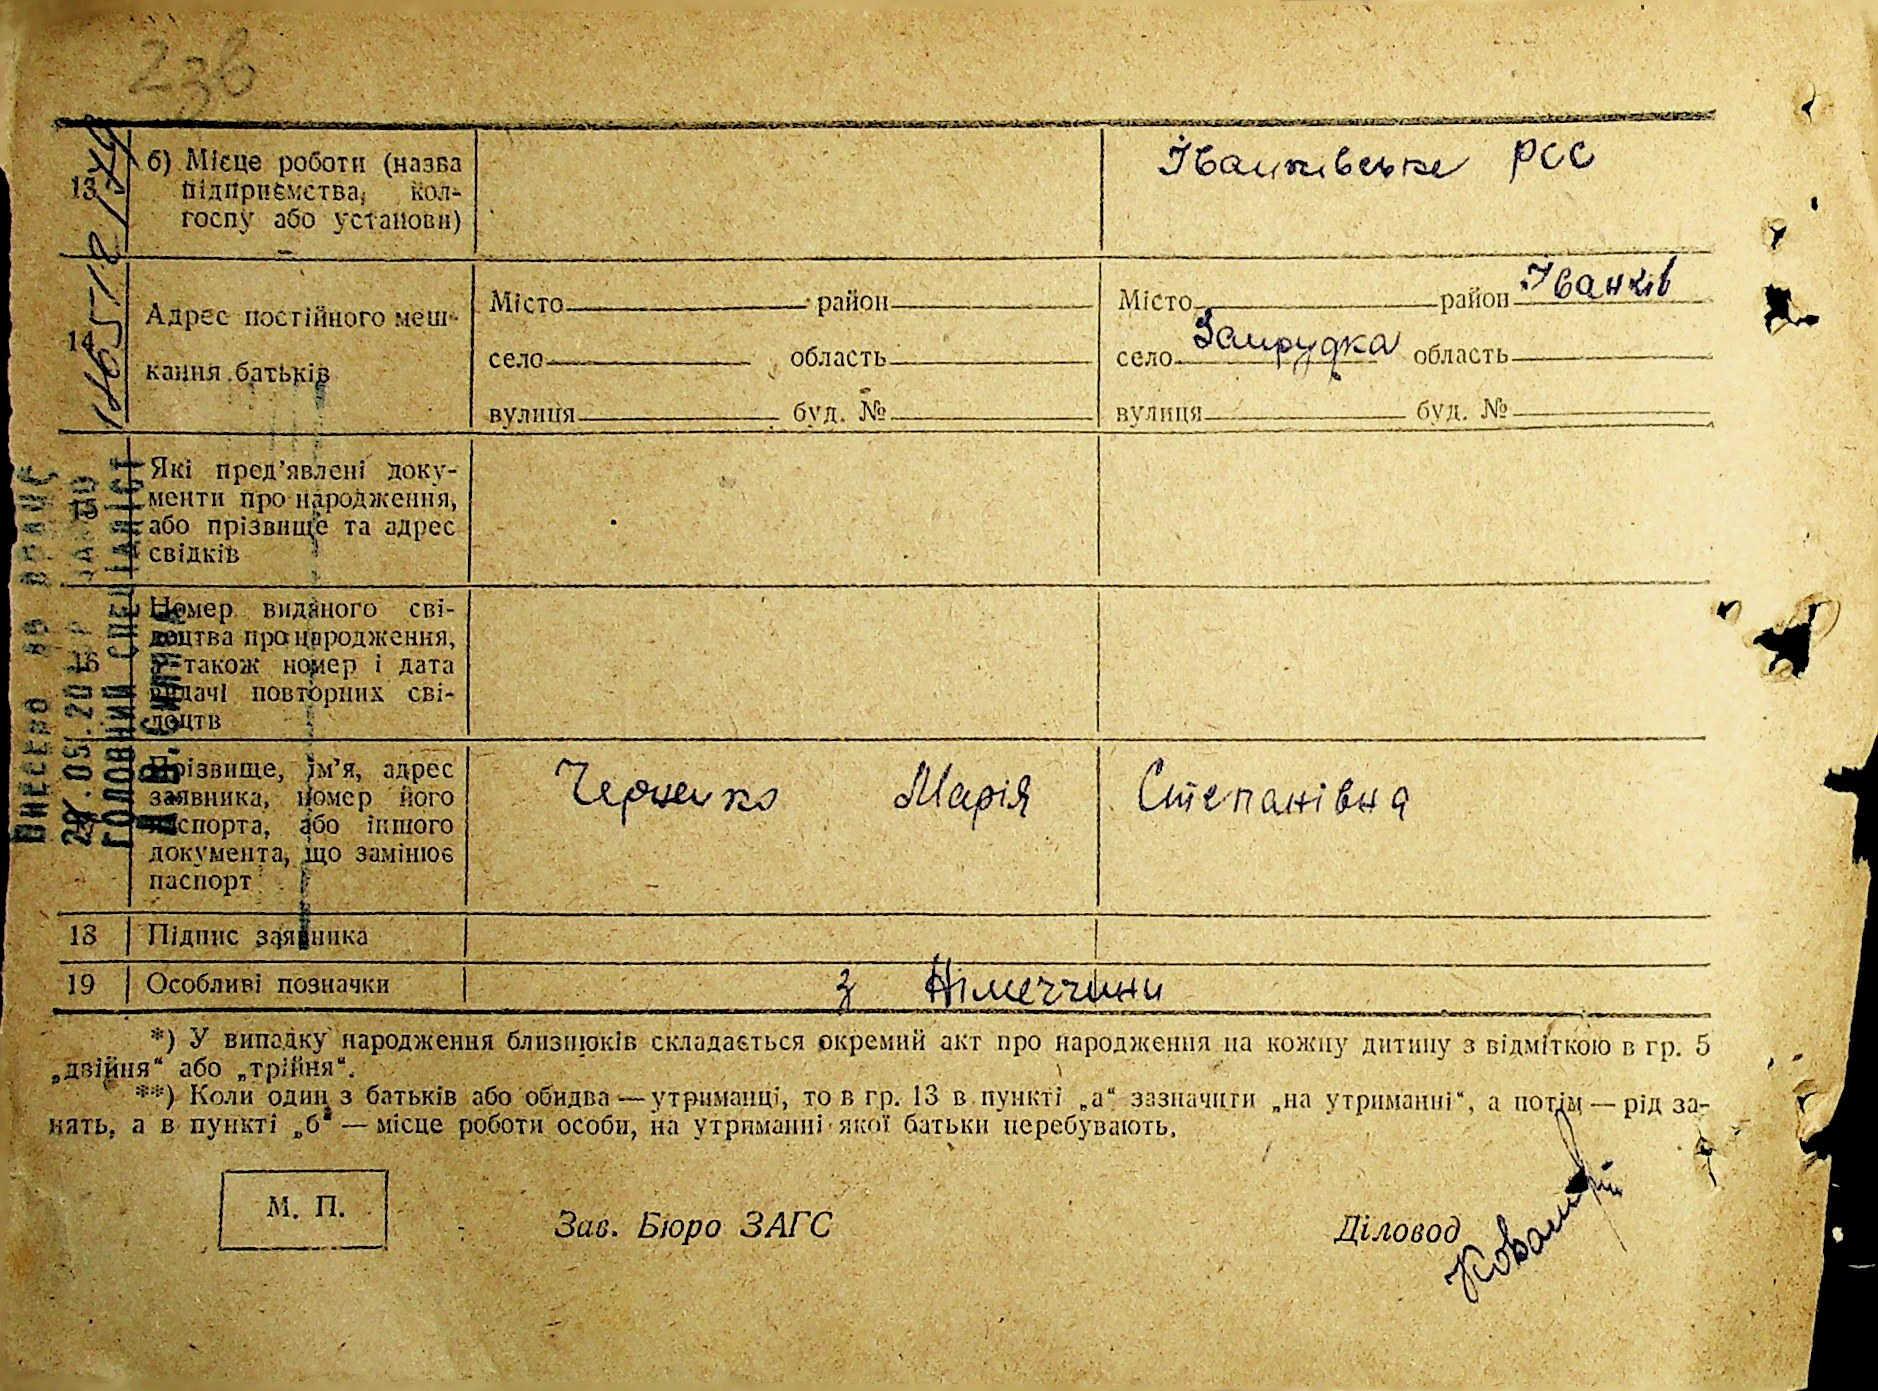 236
13
б) Місце роботи (назва
підприємства, кол-
госпу або установи)
Іванківське РСС
14
Адрес постійного меш-
кання батьків
Місто район
село область
вулиця буд. №
Місто район Іванків
село Запрудка область
вулиця буд. №
15
Які пред’явлені доку-
менти про народження,
або прізвище та адрес
свідків
16
Номер виданого сві-
доцтва про народження,
а також номер і дата
видачі повторних сві-
доцтв
Прізвище, ім’я, адрес
заявника, номер його
паспорта, або іншого
документа, що замінює
паспорт
Марія Степанівна
18 Підпис заявника
19 Особливі позначки
з Німеччини
*) У випадку народження близнюків складається окремий акт про народження на кожну дитину з відміткою в гр. 5
„двійня“ або „трійня“.
**) Коли один з батьків або обидва — утриманці, то в гр. 13 в пункті „а“ зазначити „на утриманні“, а потім — рід за-
нять, а в пункті „б“ — місце роботи особи, на утриманні якої батьки перебувають.
М. П.
Зав. Бюро ЗАГС
Діловод
ГОЛОВНИЙ СПЕЦІАЛІСТ